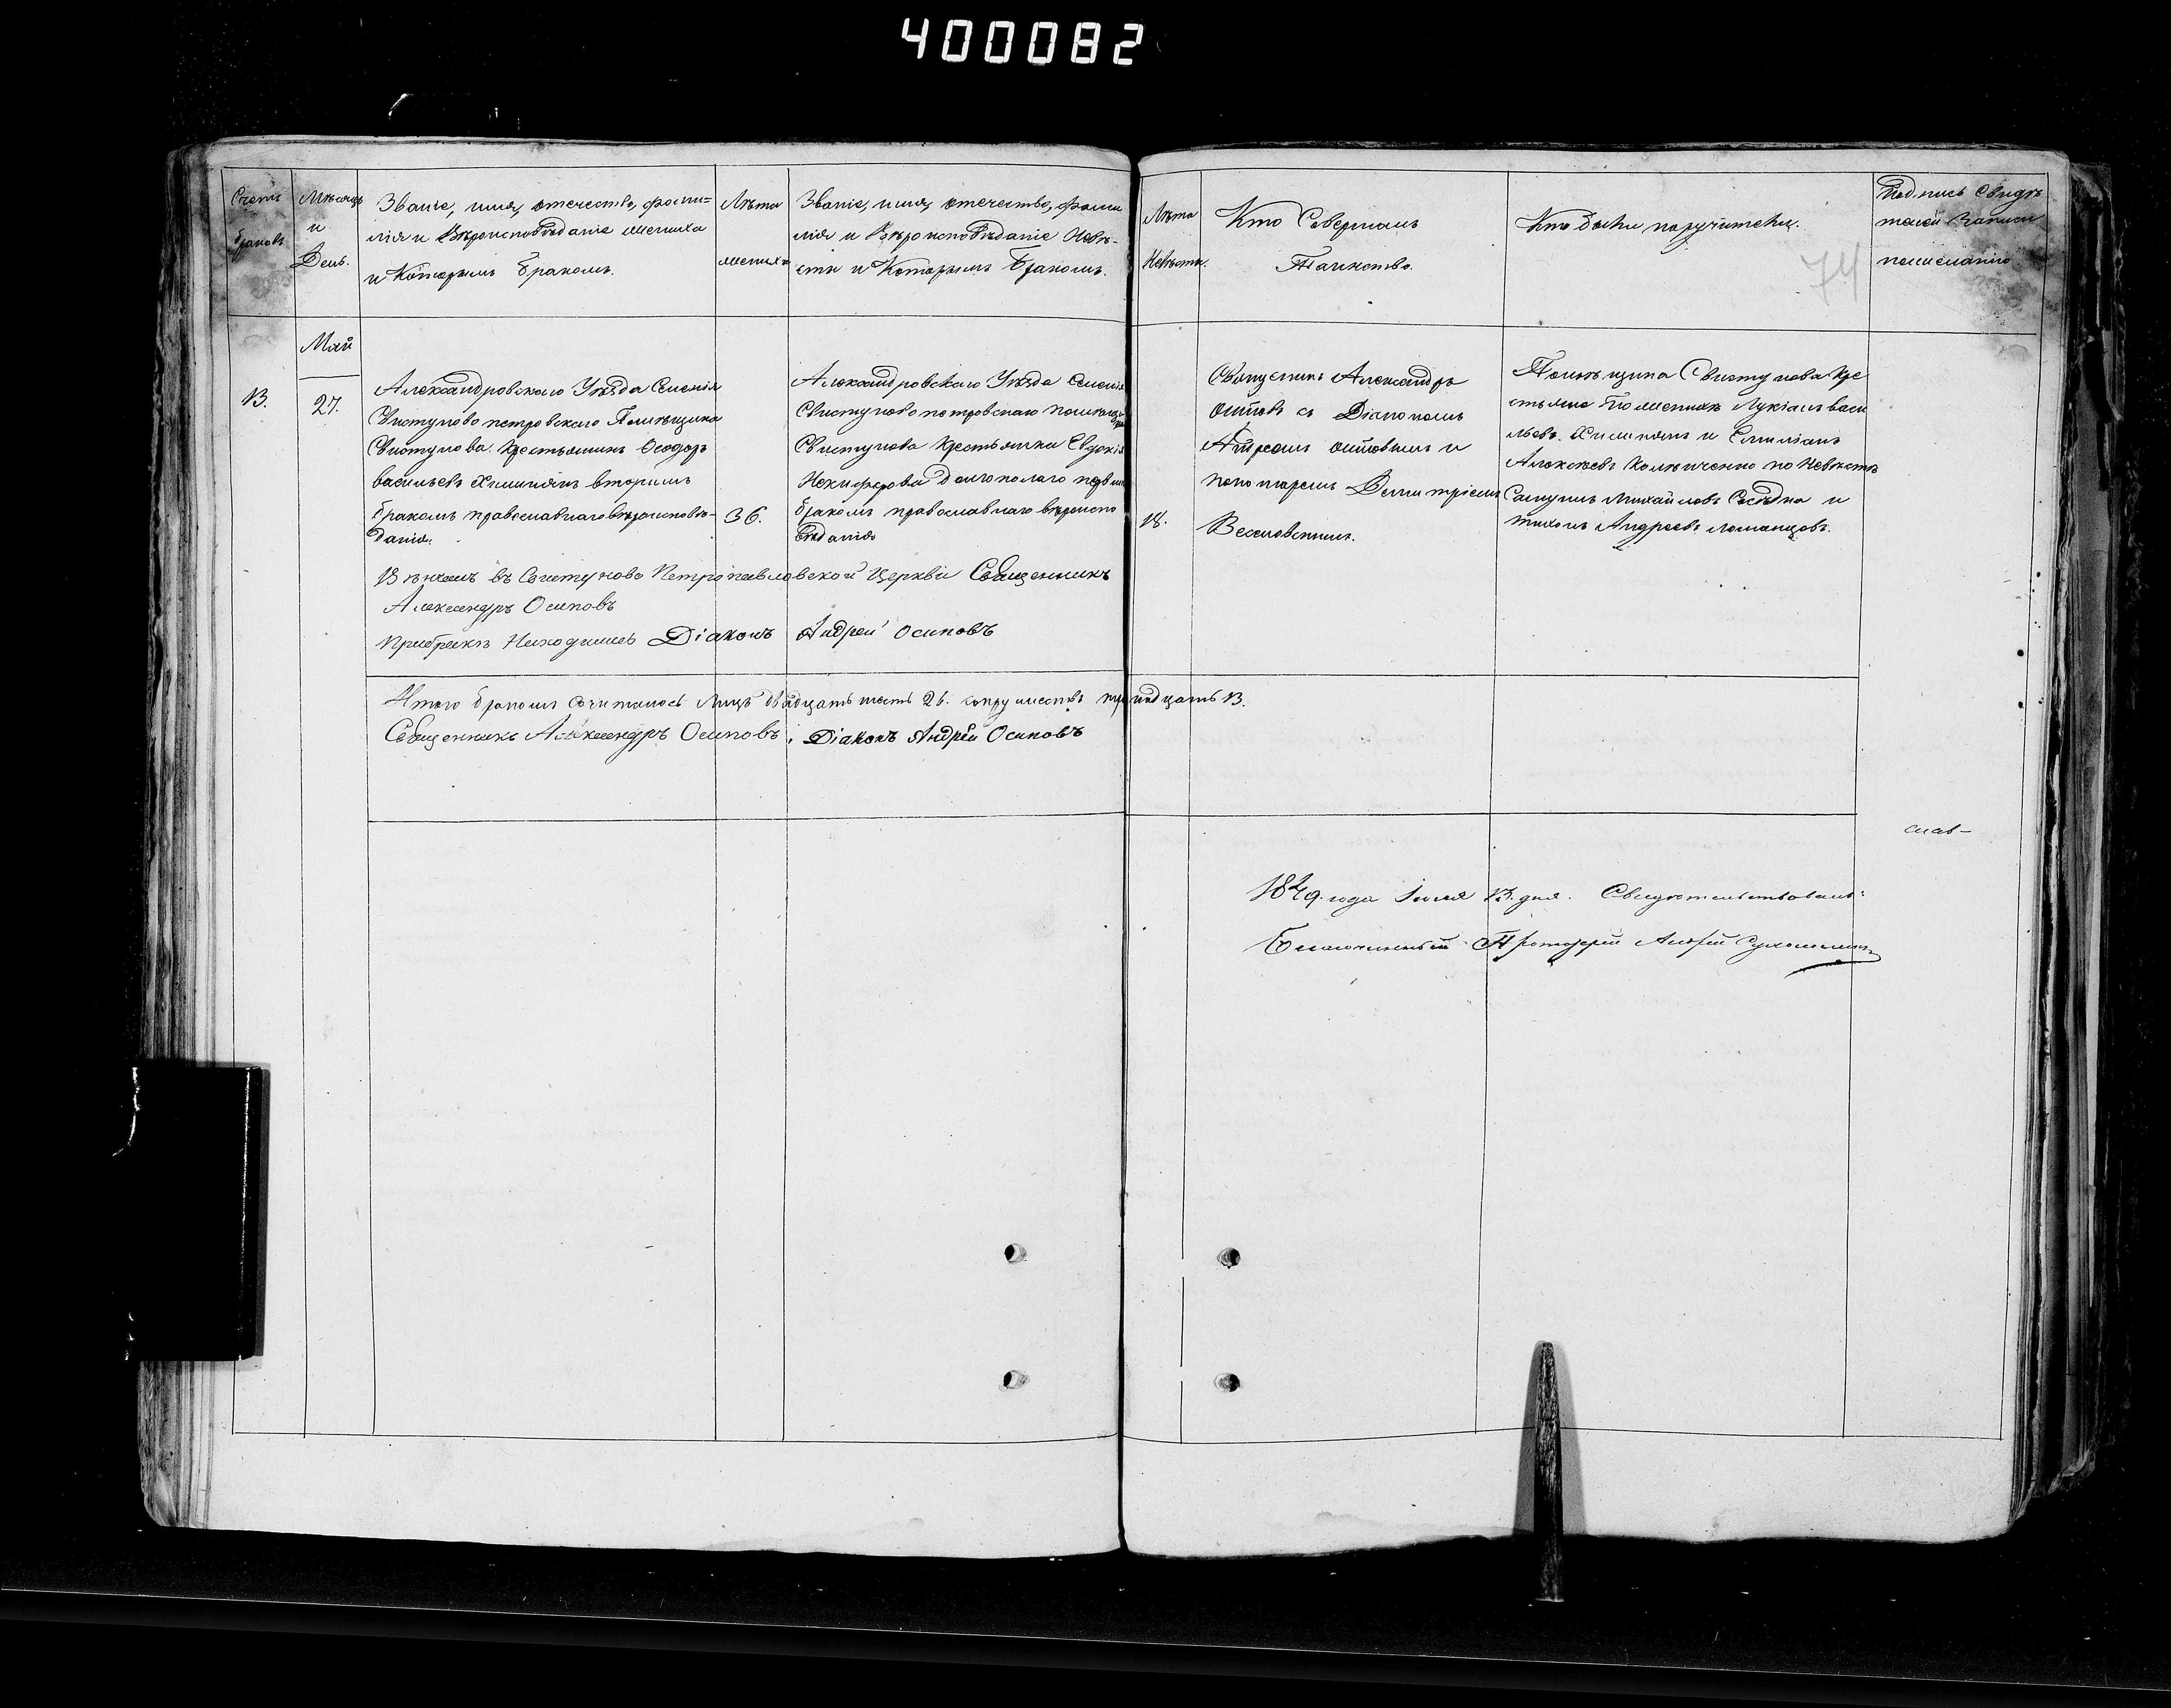 400082
Счетъ браковъ
Мѣсяцъ и День.
Званіе, имя, отечество, фами=
лія и Вѣроисповѣданіе жениха
и Которымъ бракомъ.
Лѣта жениха
Званіе, имя, отечество, фами
лія и Вѣроисповѣданіе Невѣ-
сты и Которымъ бракомъ.
Лѣта Невѣсты.
Кто Совершалъ
Таинство.
Кто были поручители.
74
Подпись Свидѣ
телей Записи
по желанію
Май
13.
27.
Александровскаго Уѣзда Селенія
Свистуново петровскаго Помѣщика
Свистунова Крестьянинъ Ѳеодоръ
васильевъ вторымъ
бракомъ православнаго вѣроисповѣ-
данія.
36.
Александровскаго Уѣзда Селенія
Свистуново петровскаго помѣщика
Свистунова Крестьянка Евдокія
Никифорова Долгополаго первымъ
бракомъ православнаго вѣроиспо
вѣданія
18.
Священникъ Александръ
Осиповъ съ Діакономъ
Андреемъ Осиповымъ и
пономаремъ Димитріемъ
Помѣщика Свистунова Кре
стьяне По женихѣ Лукіанъ васи
льевъ и Емиліанъ
Алексѣевъ по Невѣстѣ
Михайловъ и
тихонъ Андреевъ
Вѣнчалъ въ Свистуново Петропавловской Церкви Священникъ
Александръ Осиповъ
При бракѣ Находился Діаконъ Андрей Осиповъ
Итого бракомъ сочиталось лицъ двадцать шесть 26. супружествъ тринадцать 13.
Священникъ Александръ Осиповъ, Діаконъ Андрей Осиповъ
1849. года Іюля 13. дня. Свидѣтельствовалъ:
Благочинный Протоіерей Андрей